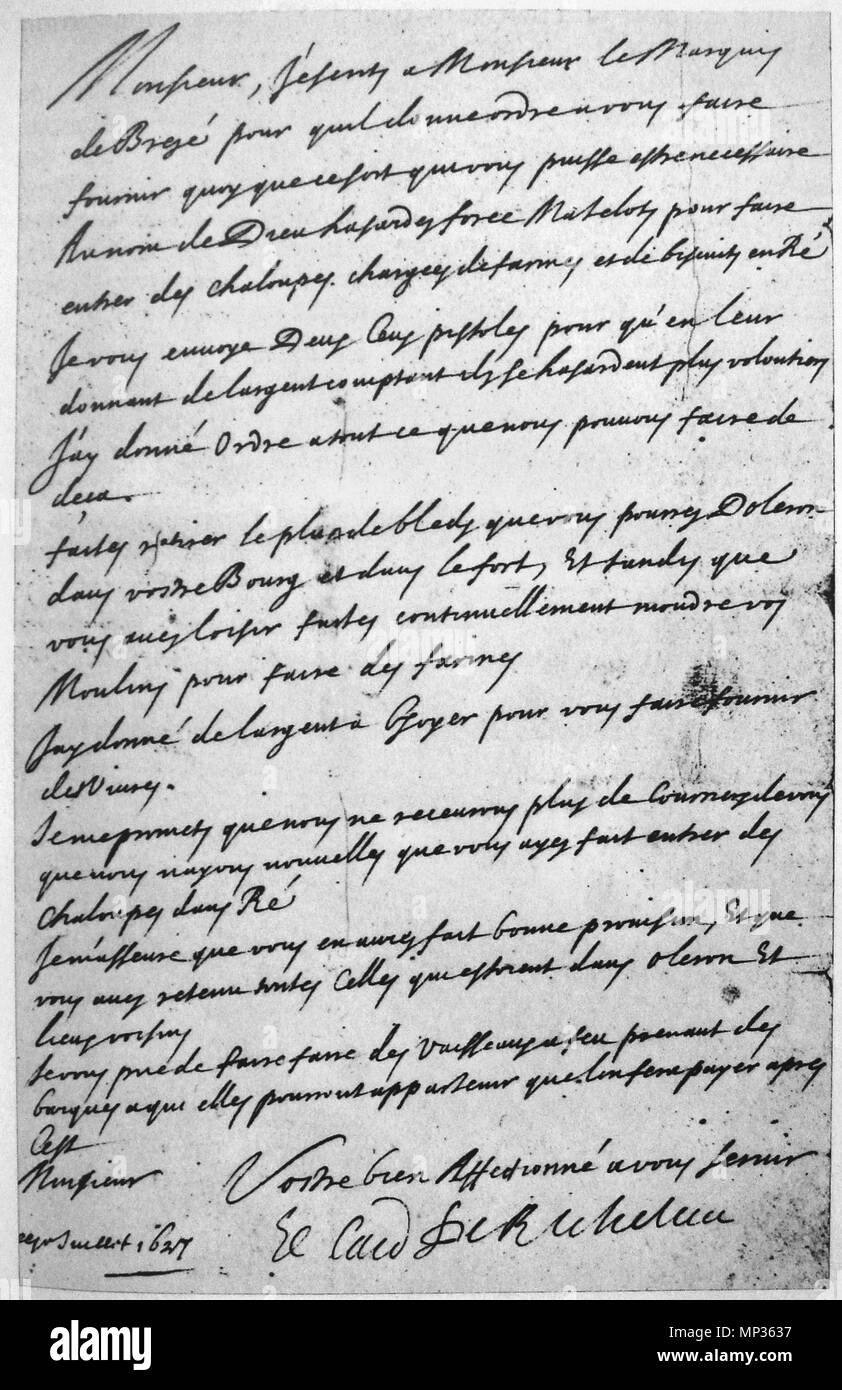 Monsieur, J'escris a Monsieur le Marquis
de Brezé pour quil donne ordre a vous faire
fournir quoy que ce soit qui vous puisse estre necessaire
Au nom de Dieu hasardes force Matelots pour faire
entrer des chaloupes chargees de farines et de biscuits en Ré
Je vous envoye Deux Cens pistoles pour qu'en leur
donnant de largent comptant ils se hasardent plus volontiers
J'ay donné Ordre a tout ce que nous pouvons faire de
deça.
faites retirer le plus de bleds que vous pourres Doleron
dans vostre Bourg et dans le fort, Et tandis que
vous aves loisir faites continuellement moudre vos
Moulins pour faire des farines
Jay donné de largent a pour vous faire fournir
des Vivres.
Je me promets que nous ne recevrons plus de Courriers de vous
que nous nayons nouvelles que vous ayes fait entrer des
chaloupes dans Ré
Je m'asseure que vous en aures fait bonne provision, Et que
vous aves retenu toutes Celles qui estoient dans oleron Et
lieux voisins
Je vous prie de faire faire des Vaisseaux a feu prenant des
barques a qui elles pourront appartenir que lon fera payer apres
Cest
Monsieur
Vostre bien Affectionné a vous servir
Le Card De Richelieu
Juillet 1627
alamy
Image ID: MP3637
www.alamy.com